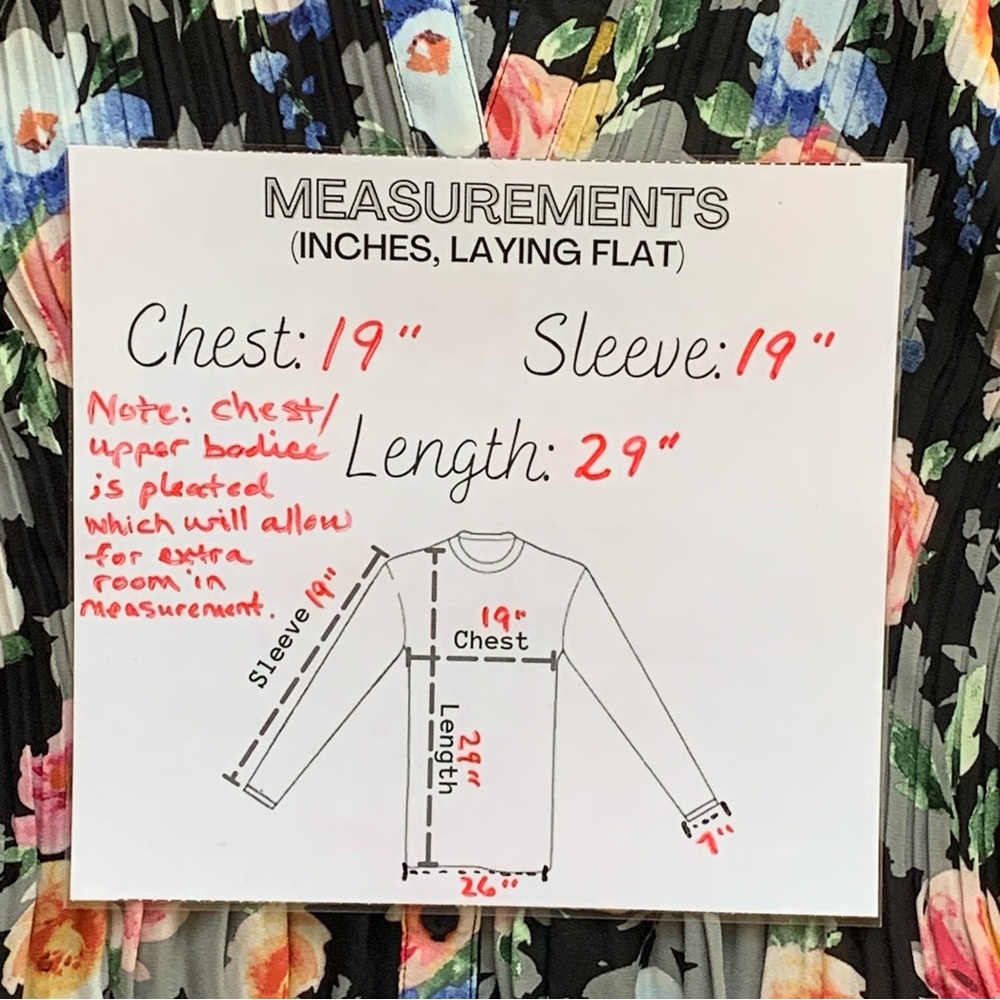 MEASUREMENTS
(INCHES, LAYING FLAT)
Chest: 19"
Sleeve: 19"
Length: 29"
Note: chest/
upper bodice
is pleated
which will allow
for extra
room in
measurement.
Sleeve 19"
19"
Chest
Length
29"
7"
26"